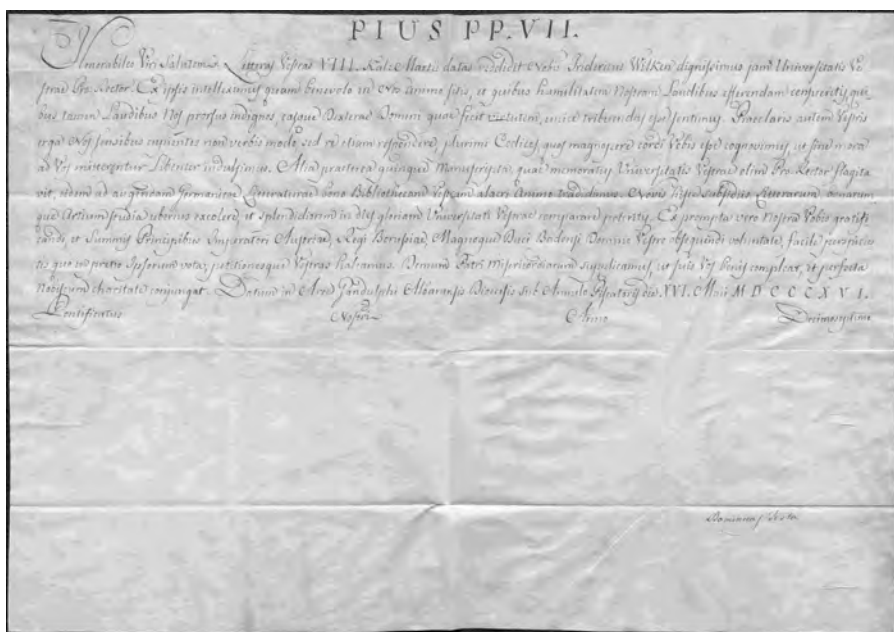 PIUS PP. VII.
Venerabiles Viri Salutem. Litteras Vestras VIII. Kal: Martii datas reddidit Nobis Fridericus Wilken dignissimus jam Universitatis Ve-
strae Pro-Rector. Ex ipsis intelleximus quam benevolo in Nos animo sitis, et quibus humilitatem Nostram Laudibus efferendam censueritis, qui-
bus tamen Laudibus Nos prorsus indignos, easque Dexterae Domini quae fecit virtutem, unice tribuendas esse sentimus. Praeclaris autem Vestris
erga Nos sensibus cupientes non verbis modo, sed re etiam respondere, plurimi Codices, quos magnopere cordi Vobis esse cognovimus, ut sine mora
ad Vos mitterentur Libenter indulsimus. Alia praeterea quinque Manuscripta, quae memoratus Universitatis Vestrae olim Pro-Rector flagita-
vit, idem ad augendam Germanicae Litteraturae bono Bibliothecam Vestram alacri Animo tradidimus. Novis hisce subsidiis Litterarum, bonarum-
que Artium studia uberius excolere, et splendidiorem in dies gloriam Universitati Vestrae comparare poteritis. Ex prompta vero Nostra Vobis gratifi-
candi, et Summis Principibus Imperatori Austriae, Regi Borussiae, Magnoque Duci Badensi Domino Vestro obsequendi voluntate, facile perspicie-
tis quo in pretio Ipsorum vota, petitionesque Vestras habeamus. Demum Patri Misericordiarum supplicamus, ut suis Vos bonis compleat, et perfecta
Nobiscum charitate conjungat. Datum in Arce Gandulphi Albanensis Dioecesis sub Annulo Piscatoris die XVI. Maii MDCCCXVI.
Pontificatus Nostri Anno Decimoseptimo
Dominicus Testa